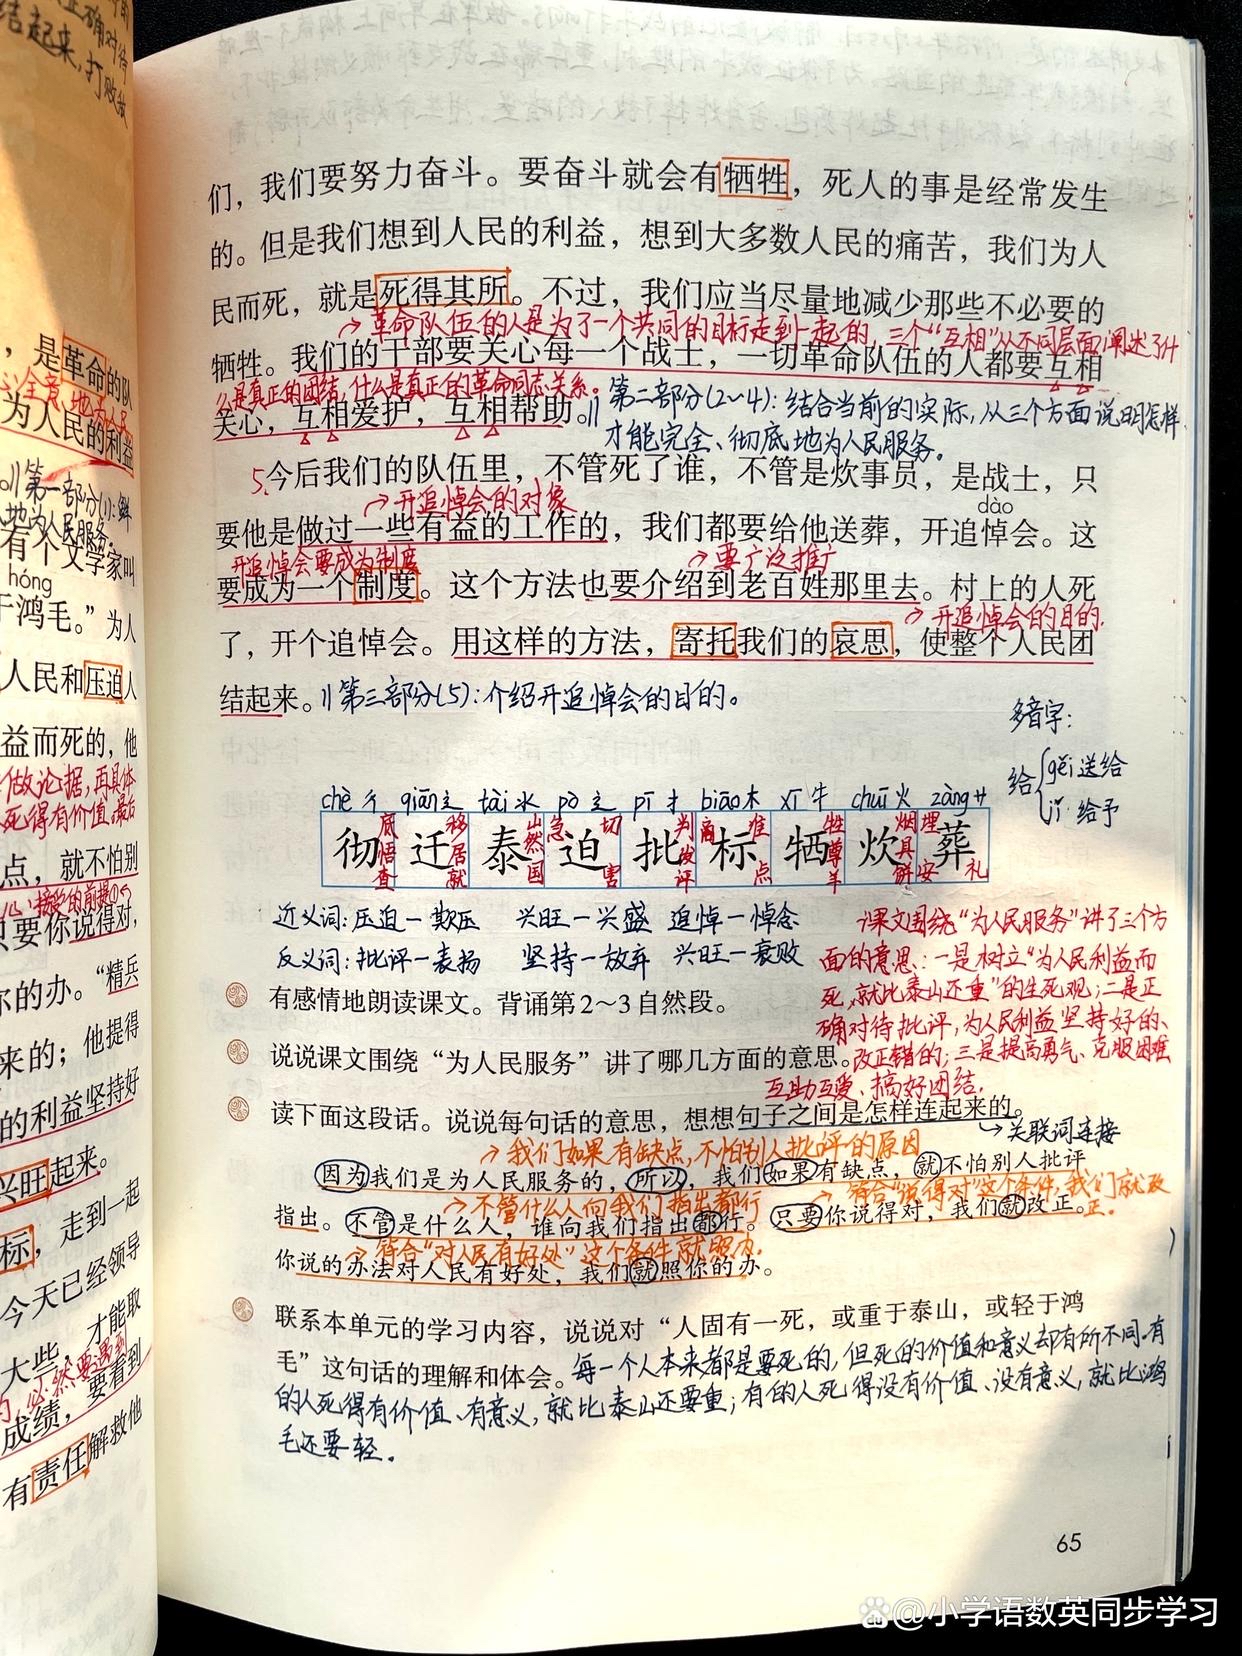 正确对待
结起来，打败敌
，是革命的队
全意地为人民
为人民的利益
。∥第一部分(1)：鲜
地为人民服务。
有个文学家叫
hóng
于鸿毛。”为人
人民和压迫人
益而死的，他
做论据，再具体
死得有价值，最后
点，就不怕别
接受的前提
只要你说得对，
你的办。“精兵
来的；他提得
的利益坚持好
兴旺起来。
标，走到一起
今天已经领导
大些，才能取
，必然要遇到
成绩，要看到
有责任解救他
们，我们要努力奋斗。要奋斗就会有牺牲，死人的事是经常发生
的。但是我们想到人民的利益，想到大多数人民的痛苦，我们为人
民而死，就是死得其所。不过，我们应当尽量地减少那些不必要的
→革命队伍的人是为了一个共同的目标走到一起的，三个“互相”从不同层面阐述了什
牺牲。我们的干部要关心每一个战士，一切革命队伍的人都要互相
么是真正的团结，什么是真正的革命同志关系。
关心，互相爱护，互相帮助。∥第二部分(2~4)：结合当前的实际，从三个方面说明怎样
才能完全、彻底地为人民服务。
5.今后我们的队伍里，不管死了谁，不管是炊事员，是战士，只
→开追悼会的对象
dào
要他是做过一些有益的工作的，我们都要给他送葬，开追悼会。这
开追悼会要成为制度 →要广泛推广
要成为一个制度。这个方法也要介绍到老百姓那里去。村上的人死
→开追悼会的目的.
了，开个追悼会。用这样的方法，寄托我们的哀思，使整个人民团
结起来。∥第三部分(5)：介绍开追悼会的目的。
多音字：
给 gěi 送给
jǐ 给予
chè 彳 qiān 辶 tài 氺 pò 辶 pī 扌 biāo 木 xī 牛 chuī 火 zàng 艹
彻 迁 泰 迫 批 标 牺 炊 葬
底 移 山 急 切 判 商 准 牲 烟 埋
悟 居 然 发 尊 具
查 就 国 害 评 点 羊 饼 安 礼
近义词：压迫—欺压 兴旺—兴盛 追悼—悼念
反义词：批评—表扬 坚持—放弃 兴旺—衰败
有感情地朗读课文。背诵第2～3自然段。
说说课文围绕“为人民服务”讲了哪几方面的意思。
课文围绕“为人民服务”讲了三个方
面的意思：一是树立“为人民利益而
死，就比泰山还重”的生死观；二是正
确对待批评，为人民利益坚持好的、
改正错的；三是提高勇气、克服困难
互助互爱、搞好团结.
读下面这段话。说说每句话的意思，想想句子之间是怎样连起来的。
→关联词连接
→我们如果有缺点，不怕别人批评的原因
因为我们是为人民服务的，所以，我们如果有缺点，就不怕别人批评
→不管什么人向我们指出都行 →符合“说得对”这个条件，我们就改正。
指出。不管是什么人，谁向我们指出都行。只要你说得对，我们就改正。
→符合“对人民有好处”这个条件就照办.
你说的办法对人民有好处，我们就照你的办。
联系本单元的学习内容，说说对“人固有一死，或重于泰山，或轻于鸿
毛”这句话的理解和体会。每一个人本来都是要死的，但死的价值和意义却有所不同.有
的人死得有价值、有意义，就比泰山还要重；有的人死得没有价值、没有意义，就比鸿
毛还要轻.
65
@小学语数英同步学习